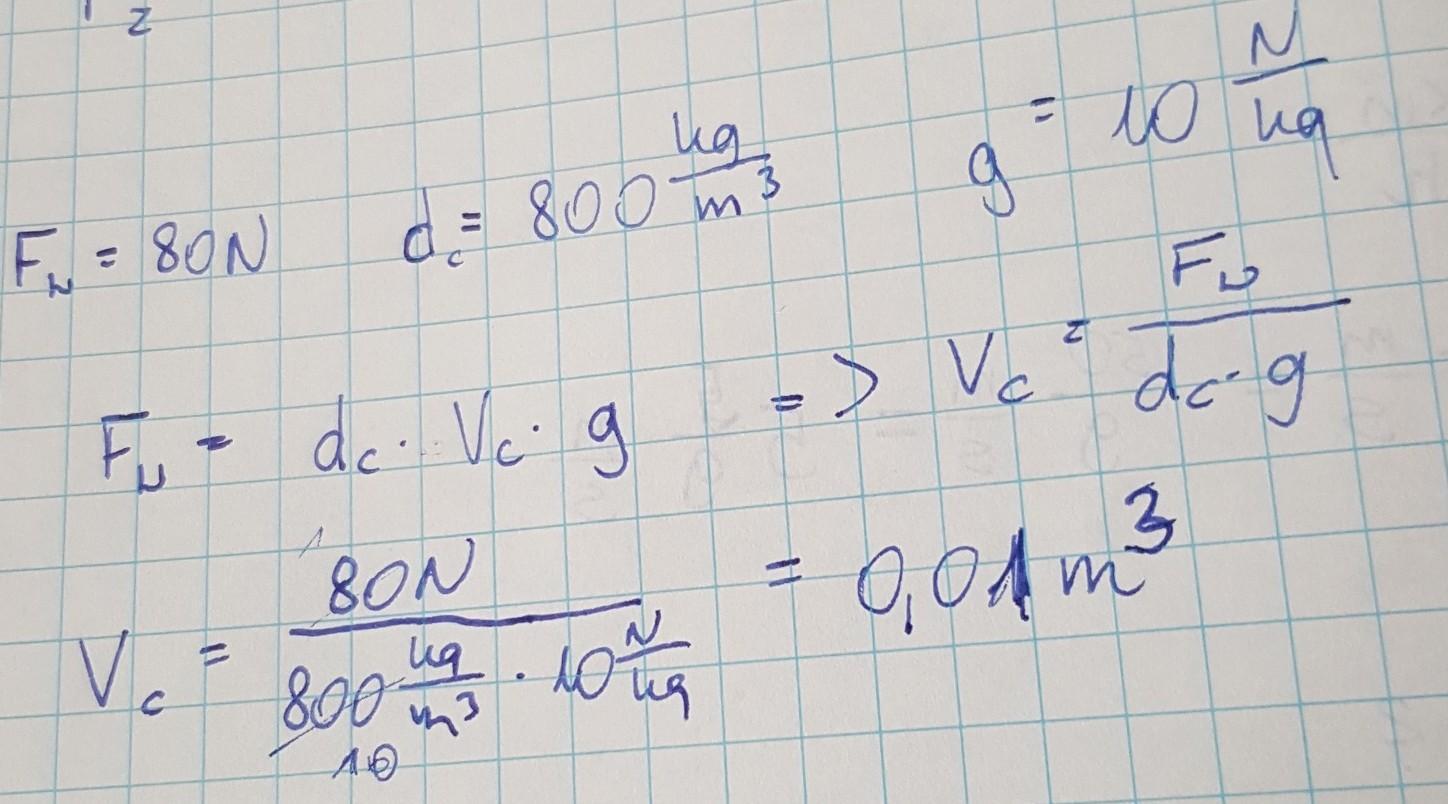 2
F_w = 80N d_c = 800 kg/m³ g = 10 N/kg
F_w = d_c · V_c · g => V_c = F_w / (d_c · g)
V_c = 80N / (800 kg/m³ · 10 N/kg) = 0,01 m³
1
10